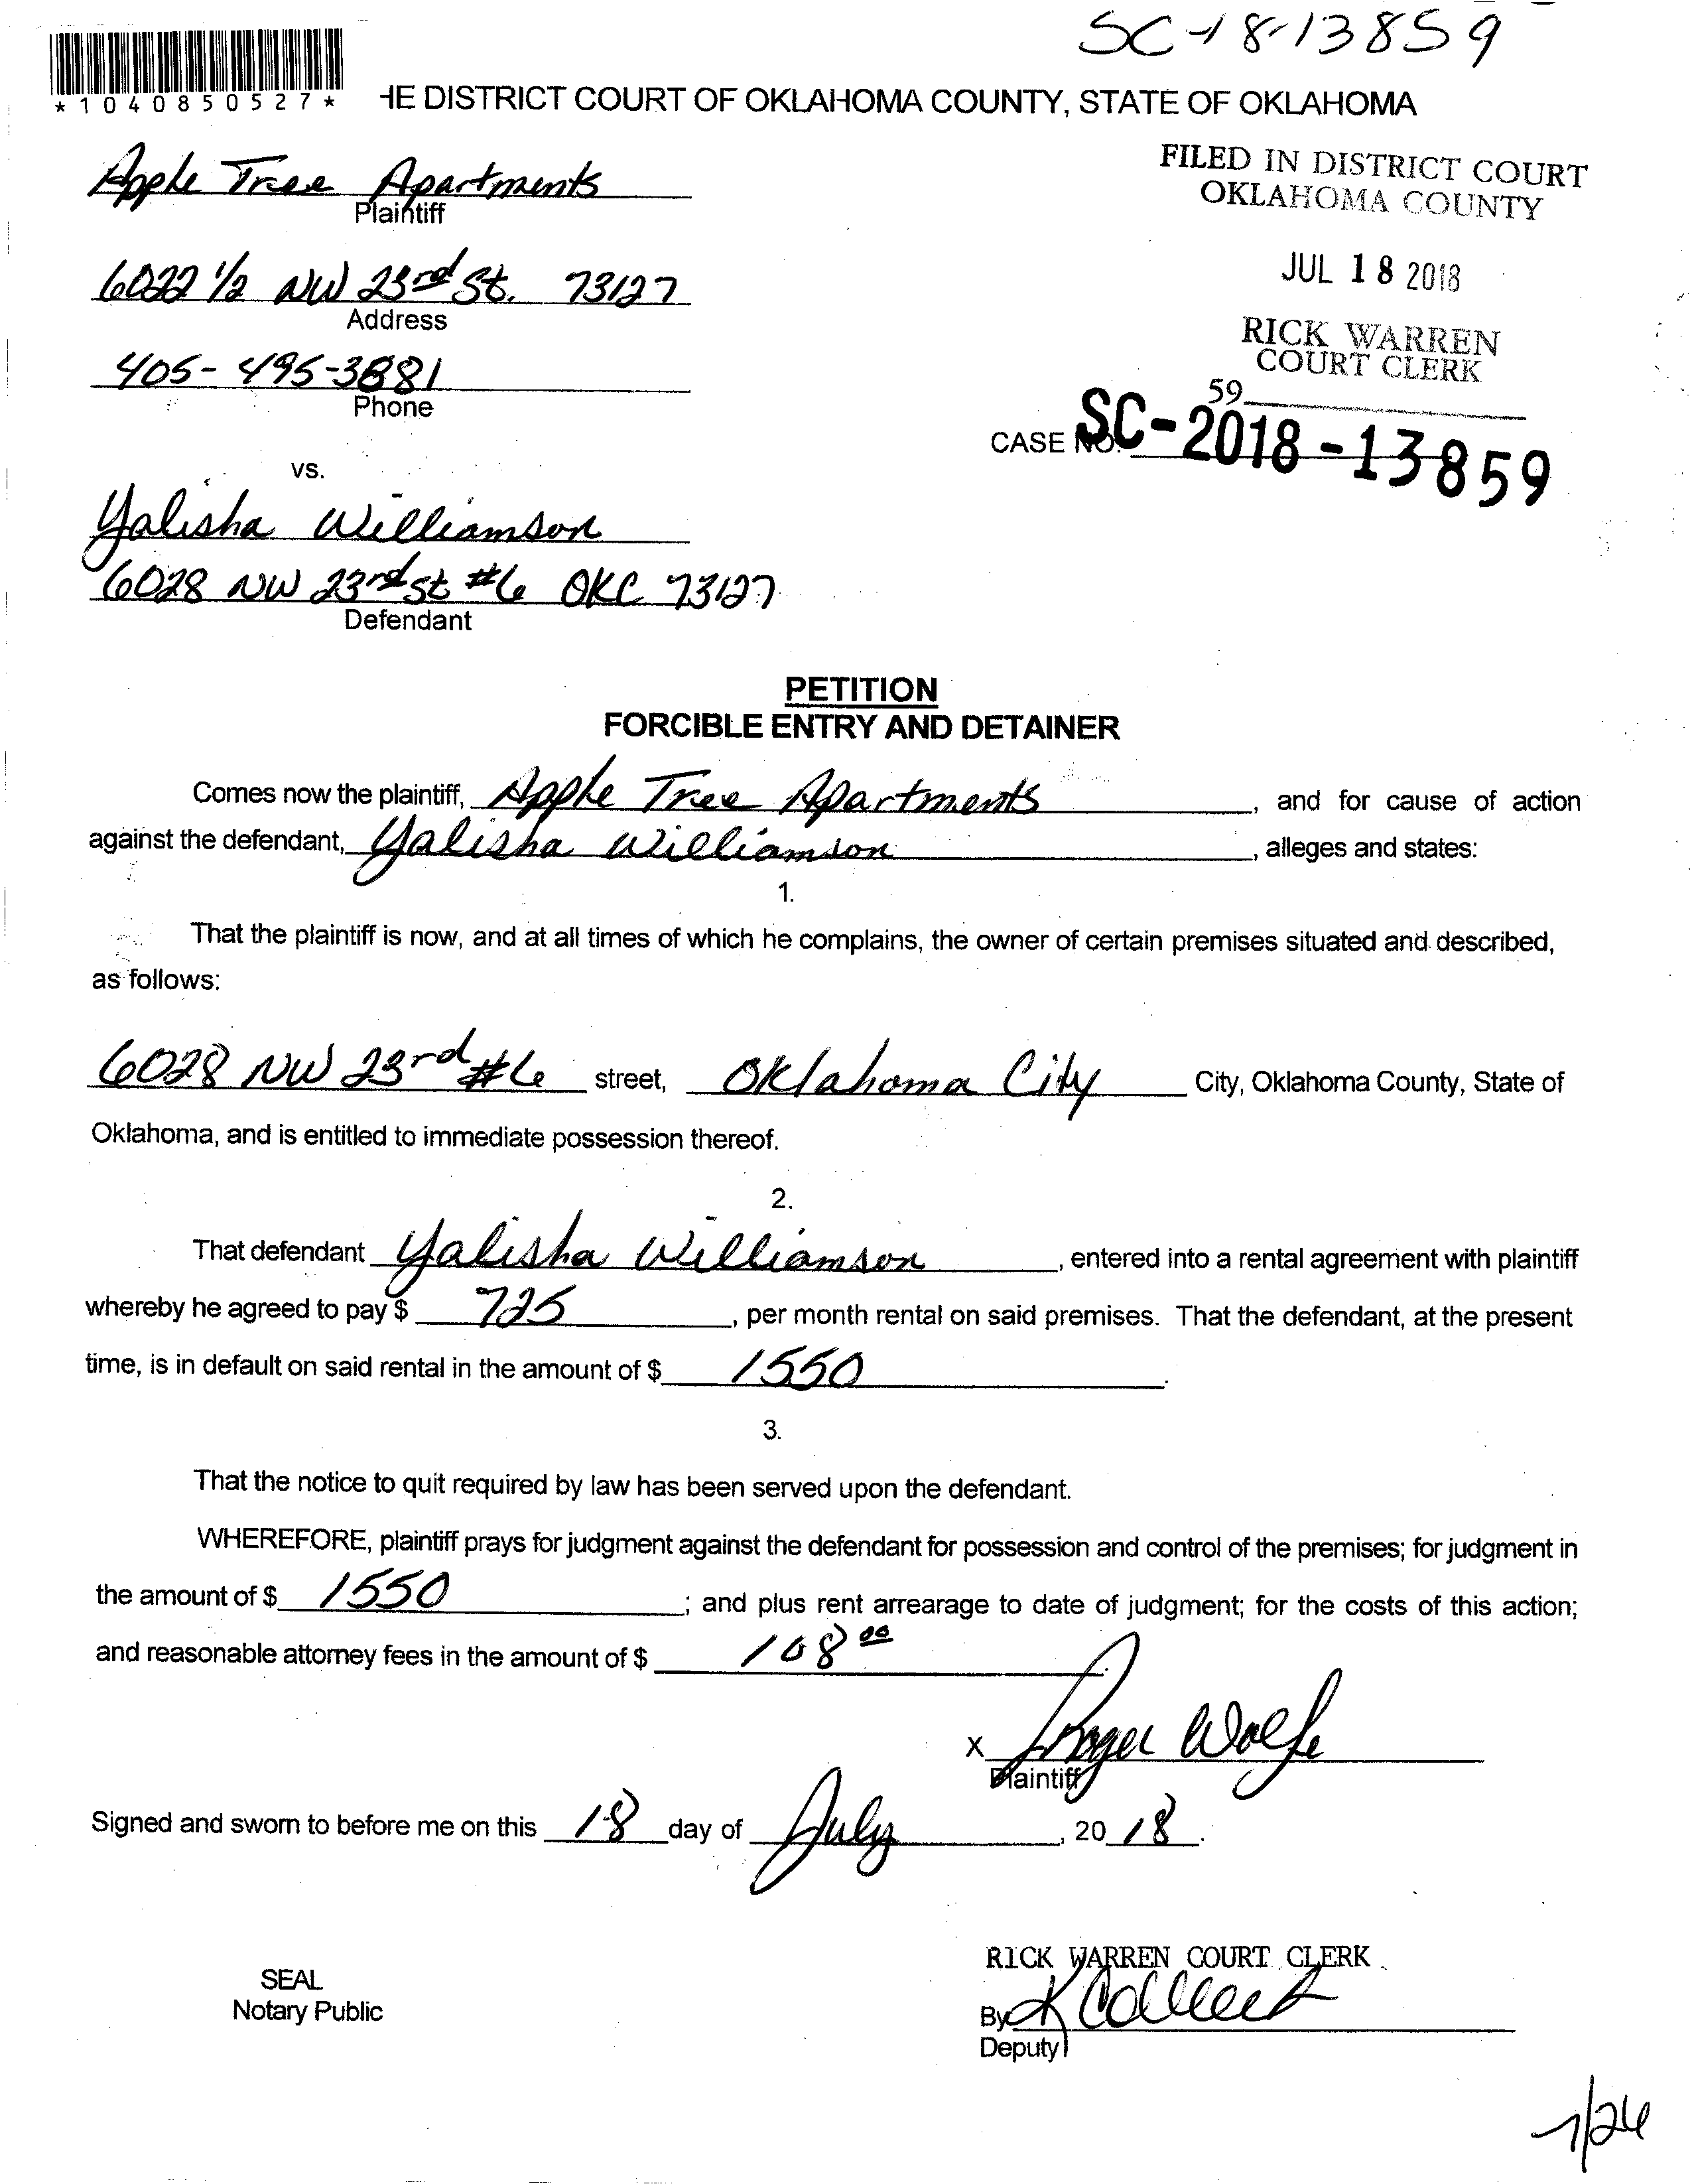 SC-18-13859
*1040850527*
HE DISTRICT COURT OF OKLAHOMA COUNTY, STATE OF OKLAHOMA
Apple Tree Apartments
Plaintiff
FILED IN DISTRICT COURT
OKLAHOMA COUNTY
6022 1/2 NW 23rd St. 73127
Address
JUL 18 2018
405-495-3881
Phone
RICK WARREN
COURT CLERK
59
CASE NO. SC-2018-13859
vs.
Yalisha Williamson
6028 NW 23rd St #6 OKC 73127
Defendant
PETITION
FORCIBLE ENTRY AND DETAINER
Comes now the plaintiff, Apple Tree Apartments, and for cause of action
against the defendant, Yalisha Williamson, alleges and states:
1.
That the plaintiff is now, and at all times of which he complains, the owner of certain premises situated and described,
as follows:
6028 NW 23rd #6 street, Oklahoma City City, Oklahoma County, State of
Oklahoma, and is entitled to immediate possession thereof.
2.
That defendant Yalisha Williamson, entered into a rental agreement with plaintiff
whereby he agreed to pay $ 725, per month rental on said premises. That the defendant, at the present
time, is in default on said rental in the amount of $ 1550.
3.
That the notice to quit required by law has been served upon the defendant.
WHEREFORE, plaintiff prays for judgment against the defendant for possession and control of the premises; for judgment in
the amount of $ 1550; and plus rent arrearage to date of judgment; for the costs of this action;
and reasonable attorney fees in the amount of $ 108 00.
X Roger Wolfe
Plaintiff
Signed and sworn to before me on this 18 day of July, 20 18.
SEAL
Notary Public
RICK WARREN COURT CLERK
By K
Deputy
7/26